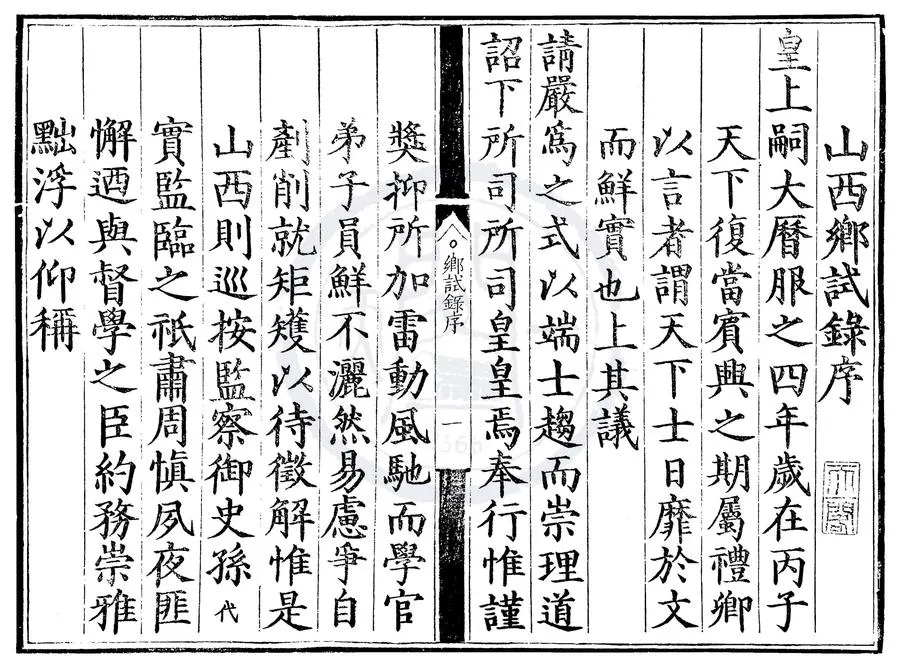 山西鄉試錄序
皇上嗣大曆服之四年歲在丙子
天下復當賓興之期屬禮卿
以言者謂天下士日靡於文
而鮮實也上其議
請嚴爲之式以端士趨而崇理道
詔下所司所司皇皇焉奉行惟謹
鄉試錄序 一
獎抑所加雷動風馳而學官
弟子員鮮不灑然易慮爭自
劘削就矩矱以待徵解惟是
山西則巡按監察御史孫代
實監臨之祇肅周慎夙夜匪
懈迺與督學之臣約務崇雅
黜浮以仰稱